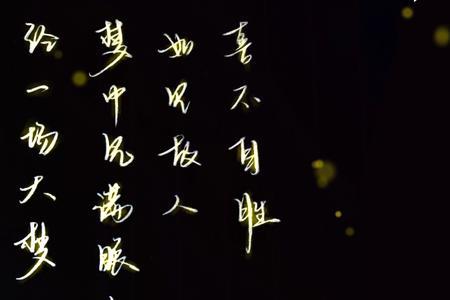 经一场大梦
梦中见满眼
如见故人
喜不自胜